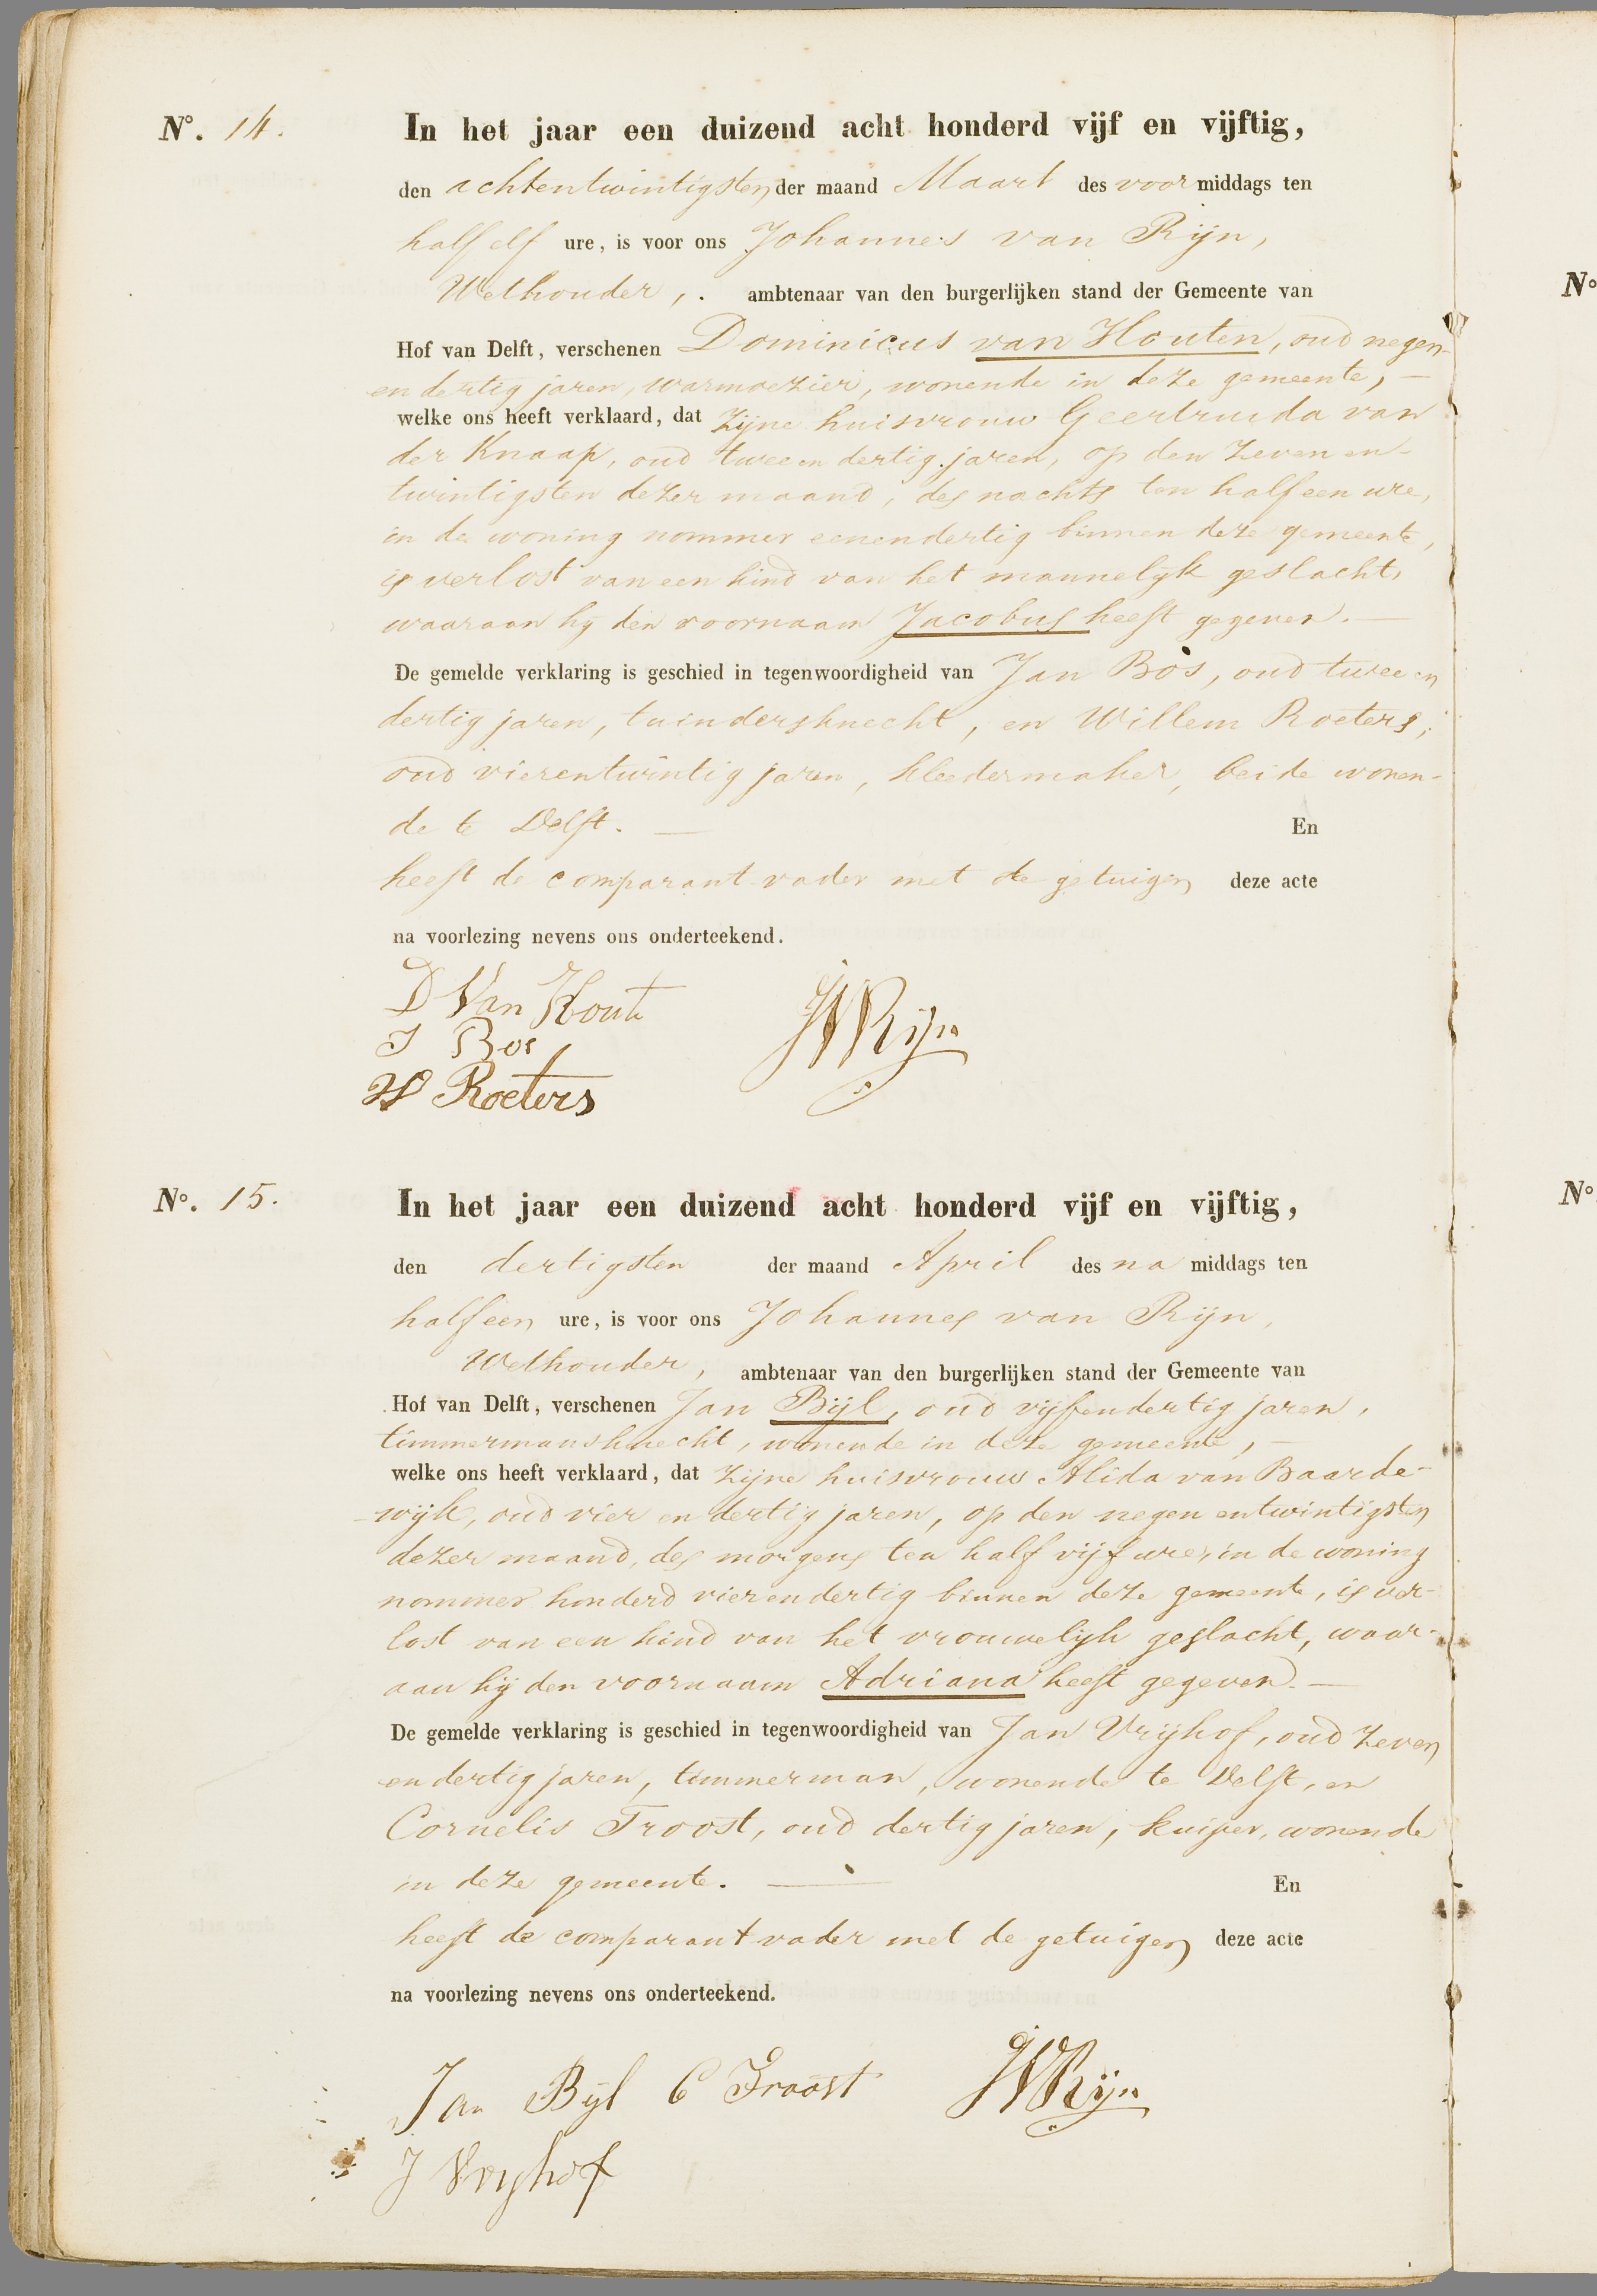 N°. 14.
In het jaar een duizend acht honderd vijf en vijftig,
den achtentwintigsten der maand Maart des voor middags ten
half elf ure, is voor ons Johannes van Rijn,
Wethouder, . ambtenaar van den burgerlijken stand der Gemeente van
Hof van Delft, verschenen Dominicus van Houten, oud negen-
en dertig jaren, warmoezier, wonende in deze gemeente, —
welke ons heeft verklaard, dat zijne huisvrouw Geertruida van
der Knaap, oud twee en dertig jaren, op den zeven en-
twintigsten dezer maand, des nachts ten half een ure,
in de woning nommer eenendertig binnen deze gemeente,
is verlost van een kind van het mannelijk geslacht,
waaraan hij den voornaam Jacobus heeft gegeven. —
De gemelde verklaring is geschied in tegenwoordigheid van Jan Bos, oud twee en
dertig jaren, tuindersknecht, en Willem Roeters,
oud vierentwintig jaren, kleedermaker, beide wonen-
de te Delft. — En
heeft de comparant vader met de getuigen deze acte
na voorlezing nevens ons onderteekend.
D Van Houte
J Bos
W Roeters
JVRijn
N°. 15.
In het jaar een duizend acht honderd vijf en vijftig,
den dertigsten der maand April des na middags ten
half een ure, is voor ons Johannes van Rijn,
Wethouder, ambtenaar van den burgerlijken stand der Gemeente van
Hof van Delft, verschenen Jan Bijl, oud vijfendertig jaren,
timmermansknecht, wonende in deze gemeente, —
welke ons heeft verklaard, dat zijne huisvrouw Alida van Baarde-
wijk, oud vier en dertig jaren, op den negen entwintigsten
dezer maand, des morgens ten half vijf ure, in de woning
nommer honderd vierendertig binnen deze gemeente, is ver-
lost van een kind van het vrouwelijk geslacht, waar-
aan hij den voornaam Adriana heeft gegeven. —
De gemelde verklaring is geschied in tegenwoordigheid van Jan Vrijhof, oud zeven
en dertig jaren, timmerman, wonende te Delft, en
Cornelis Troost, oud dertig jaren, kuiper, wonende
in deze gemeente. — En
heeft de comparant vader met de getuigen deze acte
na voorlezing nevens ons onderteekend.
Jan Bijl C Troost JVRijn
J Vryhof
N°
N°